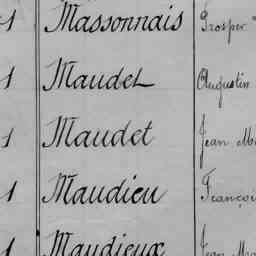 1 Massonnais Prosper
1 Maudet Augustin
1 Maudet Jean
1 Maudieu
1 Maudieux Jean